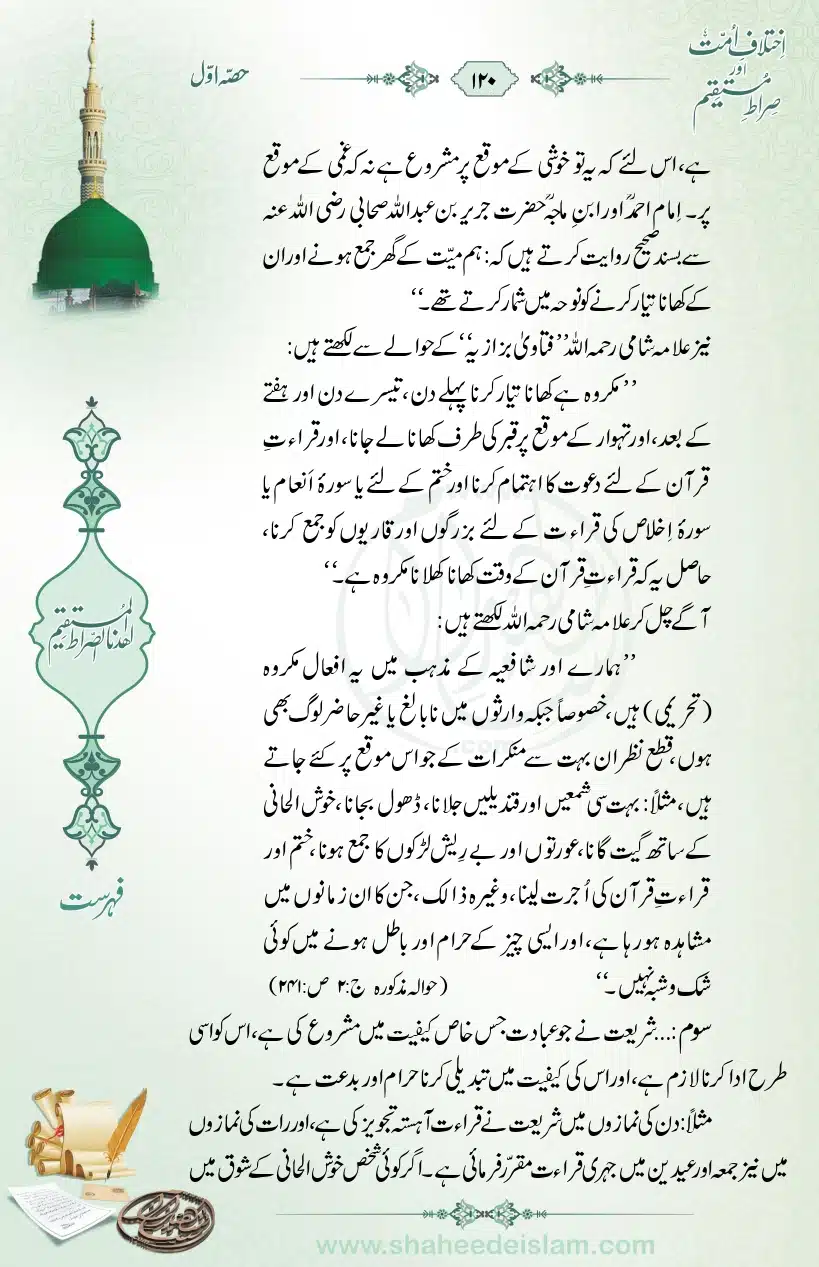 اِختلافِ اُمّت
اور
صراطِ مُستقیم
۱۲۰
حصّہ اوّل
ہے، اس لئے کہ یہ تو خوشی کے موقع پر مشروع ہے نہ کہ غمی کے موقع
پر۔ اِمام احمدؒ اور ابنِ ماجہؒ حضرت جریر بن عبداللہ صحابی رضی اللہ عنہ
سے بسند صحیح روایت کرتے ہیں کہ: ہم میّت کے گھر جمع ہونے اور ان
کے کھانا تیار کرنے کو نوحہ میں شمار کرتے تھے۔‘‘
نیز علامہ شامی رحمہ اللہ ’’فتاویٰ بزازیہ‘‘ کے حوالے سے لکھتے ہیں:
’’مکروہ ہے کھانا تیار کرنا پہلے دن، تیسرے دن اور ہفتے
کے بعد، اور تہوار کے موقع پر قبر کی طرف کھانا لے جانا، اور قراءتِ
قرآن کے لئے دعوت کا اہتمام کرنا اور ختم کے لئے یا سورۂ اَنعام یا
سورۂ اِخلاص کی قراءت کے لئے بزرگوں اور قاریوں کو جمع کرنا،
حاصل یہ کہ قراءتِ قرآن کے وقت کھانا کھلانا مکروہ ہے۔‘‘
آگے چل کر علامہ شامی رحمہ اللہ لکھتے ہیں:
’’ہمارے اور شافعیہ کے مذہب میں یہ افعال مکروہ
(تحریمی) ہیں، خصوصاً جبکہ وارثوں میں نابالغ یا غیر حاضر لوگ بھی
ہوں، قطع نظر ان بہت سے منکرات کے جو اس موقع پر کئے جاتے
ہیں، مثلاً: بہت سی شمعیں اور قندیلیں جلانا، ڈھول بجانا، خوش الحانی
کے ساتھ گیت گانا، عورتوں اور بے رِیش لڑکوں کا جمع ہونا، ختم اور
قراءتِ قرآن کی اُجرت لینا، وغیرہ ذالک، جن کا ان زمانوں میں
مشاہدہ ہو رہا ہے، اور ایسی چیز کے حرام اور باطل ہونے میں کوئی
شک و شبہ نہیں۔‘‘ (حوالہ مذکورہ ج:۲ ص:۲۴۱)
سوم:… شریعت نے جو عبادت جس خاص کیفیت میں مشروع کی ہے، اس کو اسی
طرح ادا کرنا لازم ہے، اور اس کی کیفیت میں تبدیلی کرنا حرام اور بدعت ہے۔
مثلاً: دن کی نمازوں میں شریعت نے قراءت آہستہ تجویز کی ہے، اور رات کی نمازوں
میں نیز جمعہ اور عیدین میں جہری قراءت مقرّر فرمائی ہے۔ اگر کوئی شخص خوش الحانی کے شوق میں
اهدنا الصّراط المُستقیم
فہرست
www.shaheedeislam.com